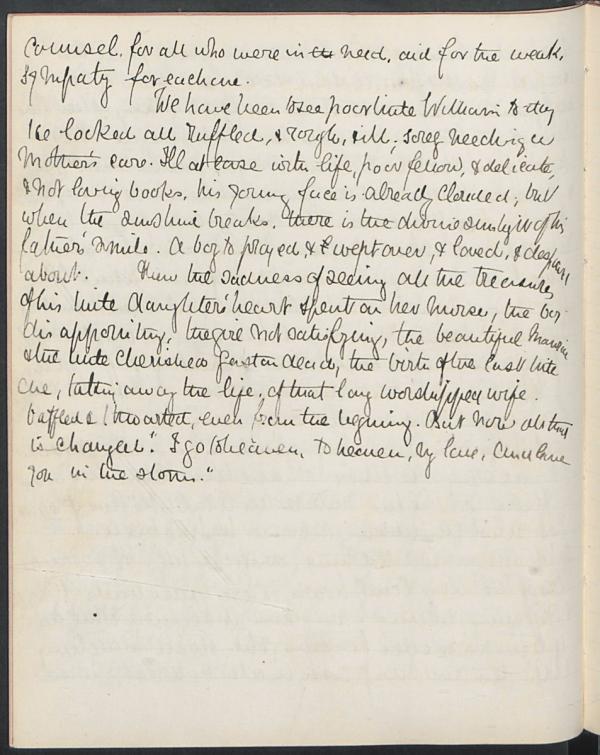 counsel, for all who were in need, aid for the weak,
sympathy for each one.
We have been to see poor little William to day
he looked all ruffled, & rough, & ill; sorely needing a
Mother's care. Ill at ease with life, poor fellow, & delicate,
& not loving books, his young face is already clouded; but
when the sunshine breaks, there is the divine sunlight of his
father's smile. A boy to be prayed, & wept over, & loved, & despair
about. Then the sadness of seeing all the treasures
of his little daughter's heart spent on her nurse, the boy
disappointing, the girl not satisfying, the beautiful
& the little cherished Gaston dead, the birth of the last little
one, taking away the life, of that long worshipped wife.
baffled & thwarted, even from the beginning. But now all that
is changed. "I go to heaven, to heaven, my love,
you in the storm."